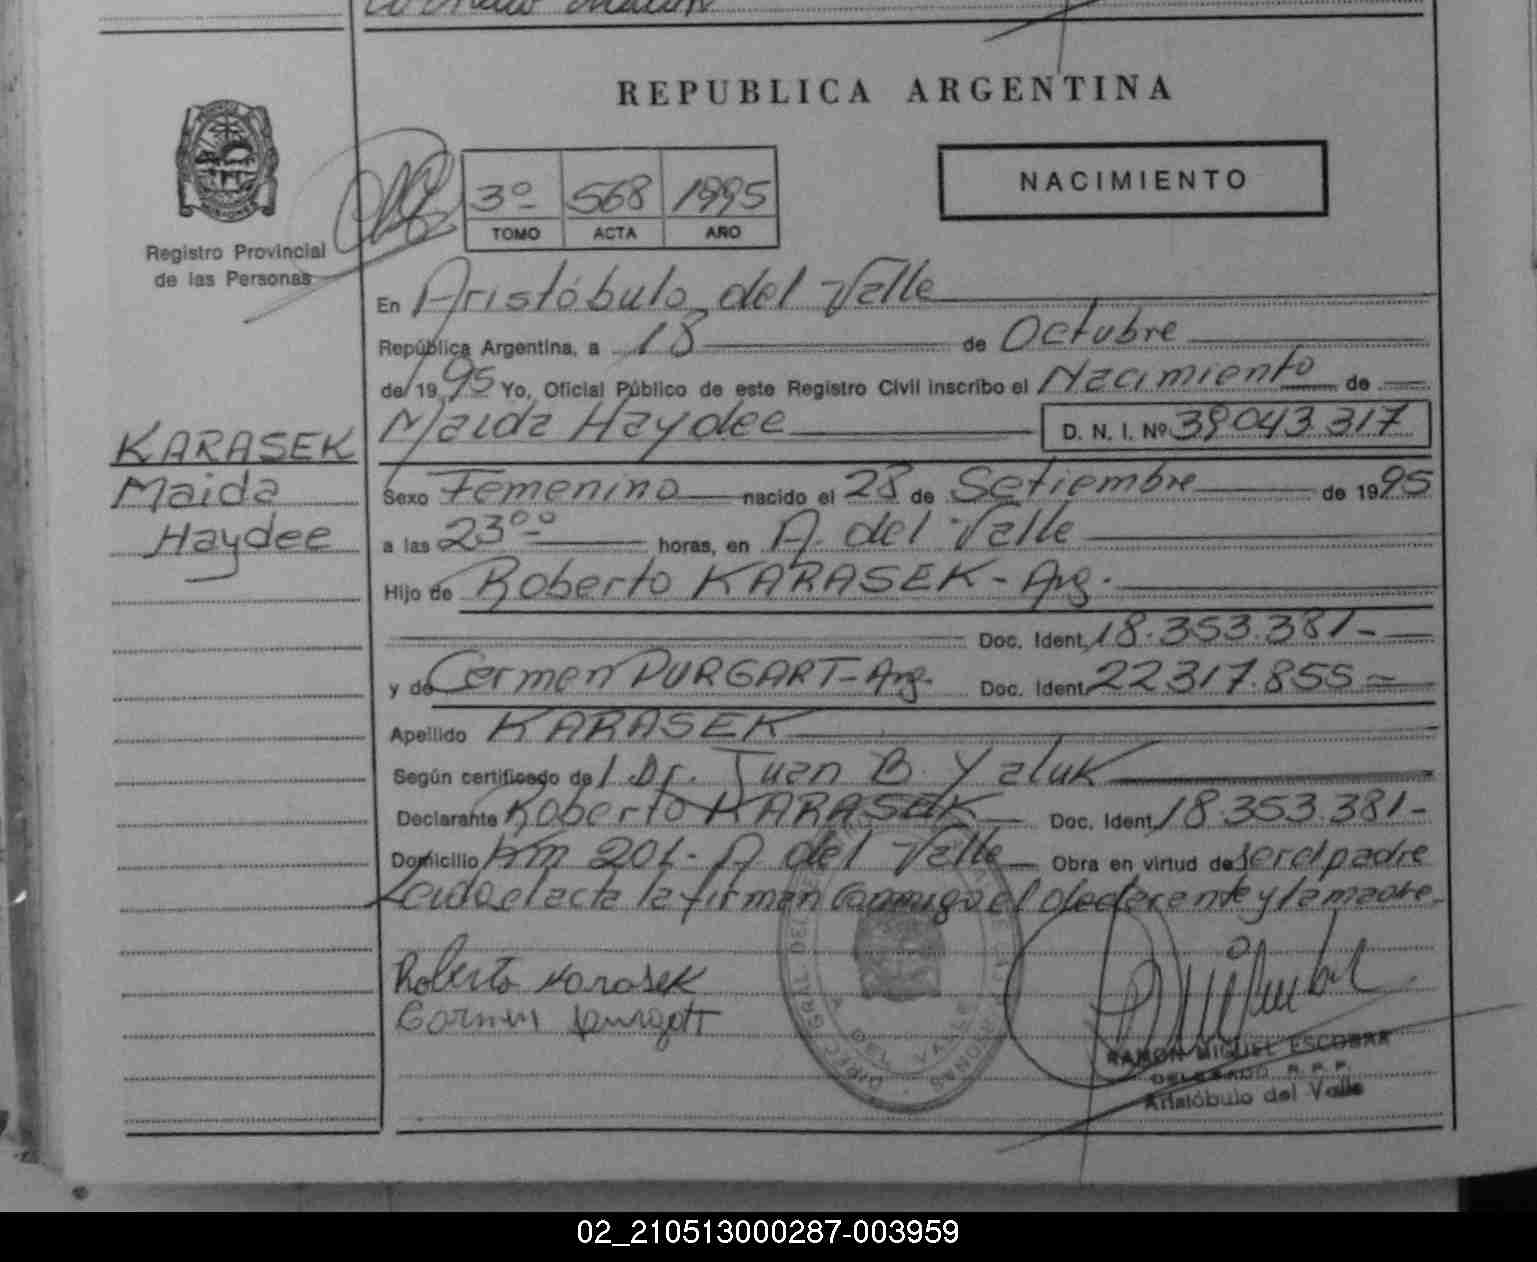 REPUBLICA ARGENTINA
NACIMIENTO
3º 568 1995
TOMO ACTA AÑO
Registro Provincial
de las Personas
En Aristóbulo del Valle
República Argentina, a 18 de Octubre
de 1995 Yo, Oficial Público de este Registro Civil inscribo el Nacimiento de
Maida Haydee D. N. I. Nº 39043317
KARASEK
Maida
Haydee
Sexo Femenino nacido el 28 de Setiembre de 1995
a las 23°° horas, en A. del Valle
Hijo de Roberto KARASEK - Arg.
Doc. Ident. 18.353.381-
y de Carmen PURGART - Arg. Doc. Ident. 22317.855
Apellido KARASEK
Según certificado del Dr. Juan B. Yaluk
Declarante Roberto KARASEK Doc. Ident. 18.353.381-
Domicilio Km 201- A. del Valle Obra en virtud de ser el padre
Leida el acta la firman conmigo el declarante y la madre.
Roberto Karasek
Carmen
RAMON MIGUEL ESCOBAR
DELEGADO R. P. P.
Aristóbulo del Valle
02_210513000287-003959